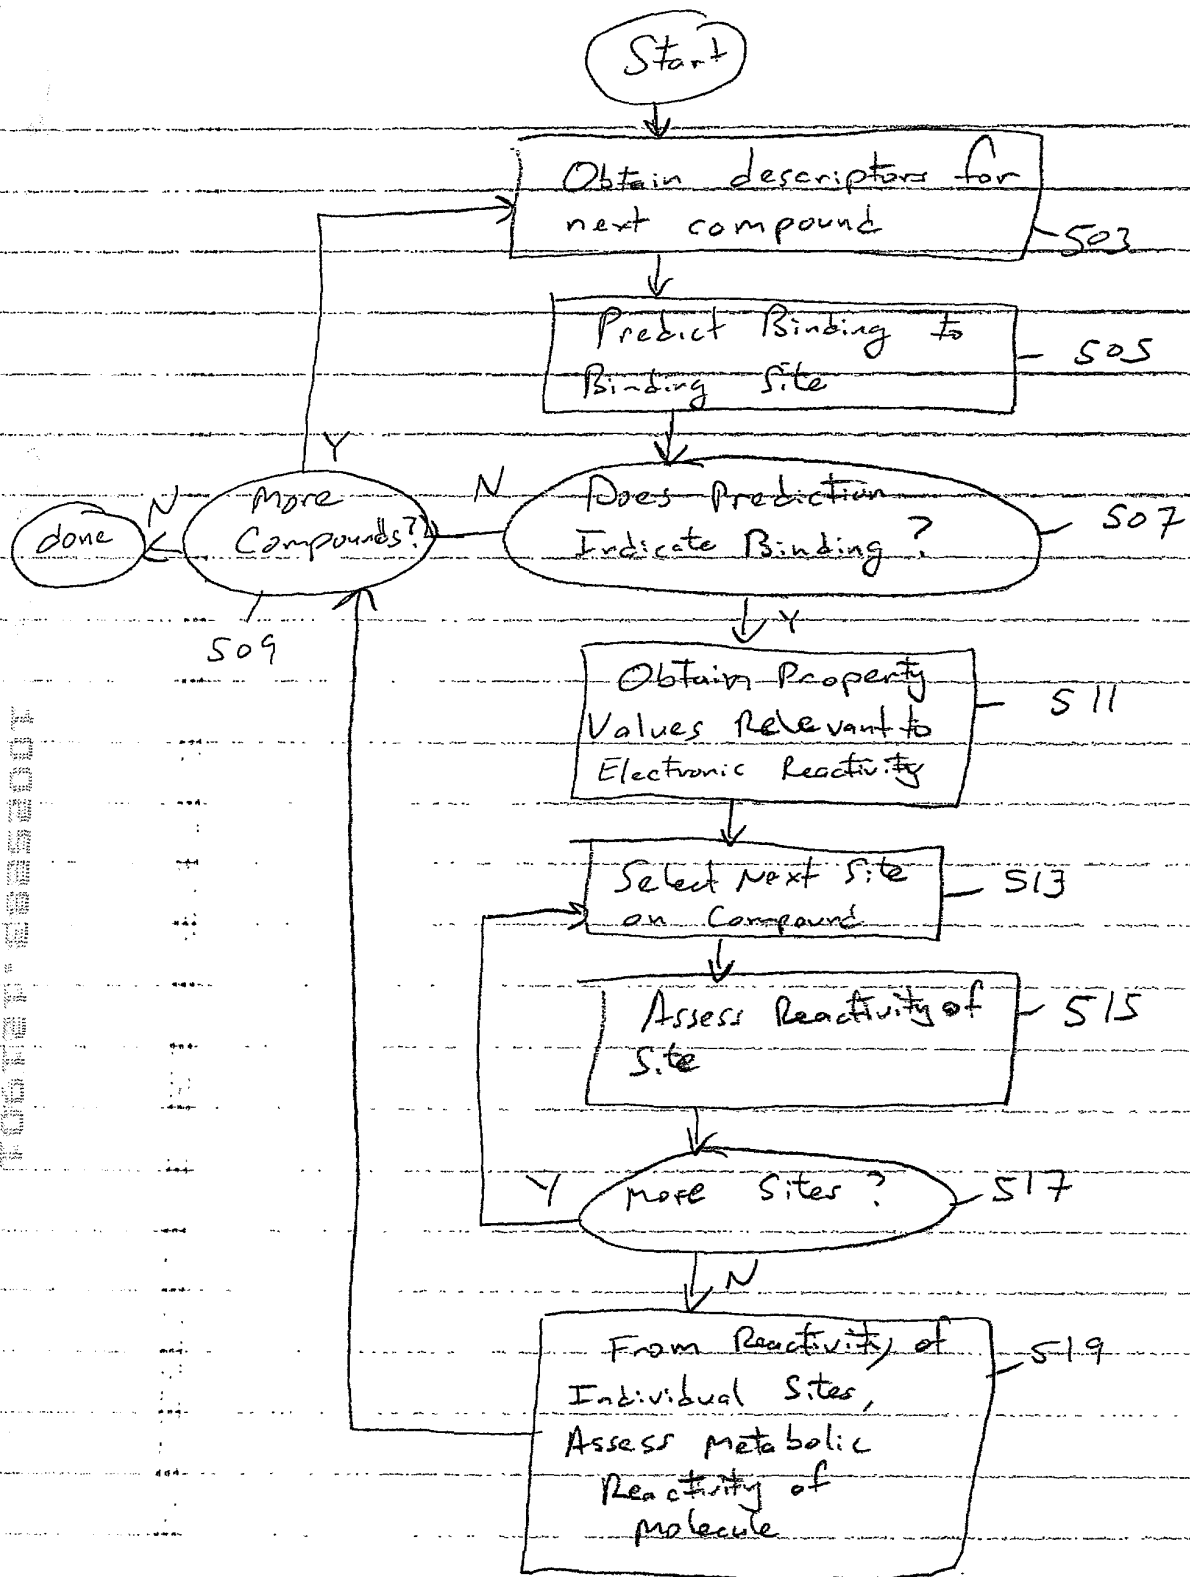 Start
Obtain descriptors for
next compound
503
Predict Binding to
Binding Site
505
Y
N
More
Compounds?
N
done
Does Prediction
Indicate Binding?
507
509
Y
Obtain Property
Values Relevant to
Electronic Reactivity
511
Select Next Site
on Compound
513
Assess Reactivity of
Site
515
Y
More Sites?
517
N
From Reactivity of
Individual Sites,
Assess Metabolic
Reactivity of
Molecule
519